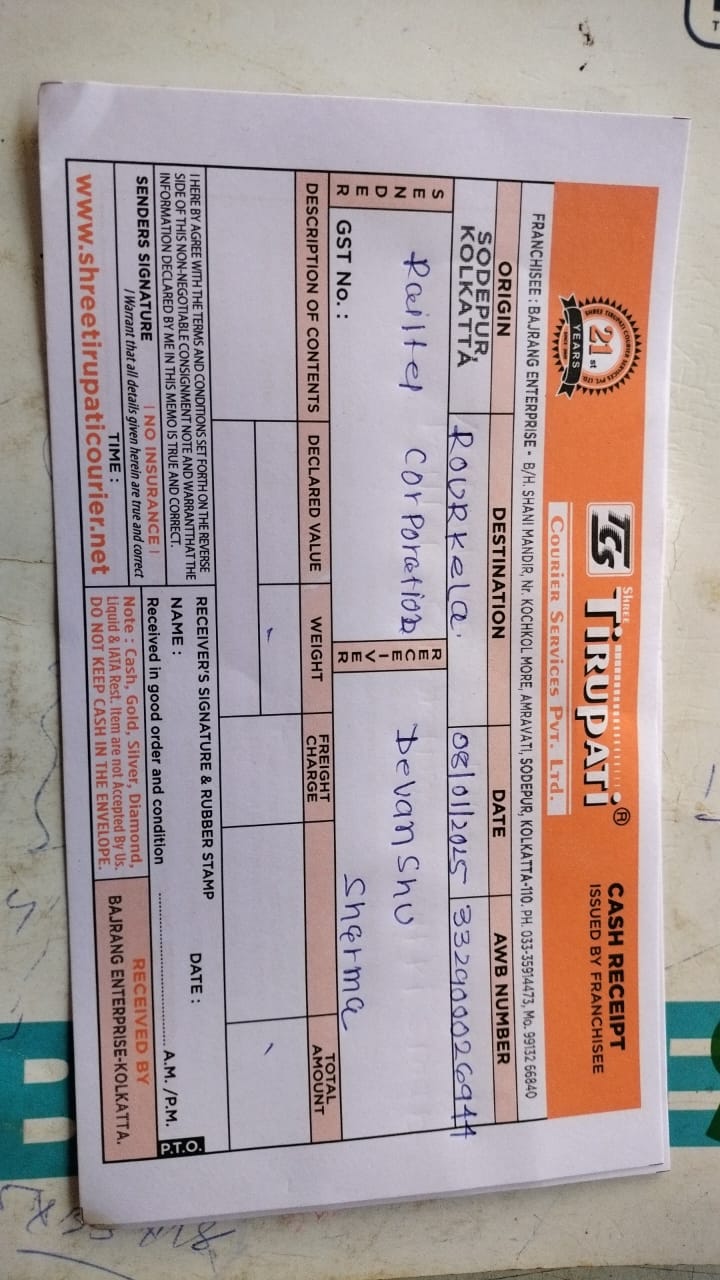 21st
YEARS
SHREE
TIRUPATI®
COURIER SERVICES PVT. LTD.
CASH RECEIPT
ISSUED BY FRANCHISEE
FRANCHISEE : BAJRANG ENTERPRISE - B/H. SHANI MANDIR, Nr. KOCHKOL MORE, AMRAVATI, SODEPUR, KOLKATTA-110. PH. 033-35914473, Mo. 99132 66840
ORIGIN DESTINATION DATE AWB NUMBER
SODEPUR, KOLKATTA Rourkela. 08/01/2025 332900026944
SENDER
Railtel Corporation
RECIEVER
Devanshu
Sharma
GST No. :
DESCRIPTION OF CONTENTS DECLARED VALUE WEIGHT FREIGHT CHARGE TOTAL AMOUNT
I HERE BY AGREE WITH THE TERMS AND CONDITIONS SET FORTH ON THE REVERSE
SIDE OF THIS NON-NEGOTIABLE CONSIGNMENT NOTE AND WARRANT THAT THE
INFORMATION DECLARED BY ME IN THIS MEMO IS TRUE AND CORRECT.
SENDERS SIGNATURE ! NO INSURANCE !
I Warrant that all details given herein are true and correct
TIME :
www.shreetirupaticourier.net
RECEIVER'S SIGNATURE & RUBBER STAMP
NAME : DATE :
Received in good order and condition ........................ A.M. /P.M. P.T.O.
Note : Cash, Gold, Silver, Diamond,
Liquid & IATA Rest. Item are not Accepted By Us.
DO NOT KEEP CASH IN THE ENVELOPE.
RECEIVED BY
BAJRANG ENTERPRISE-KOLKATTA.